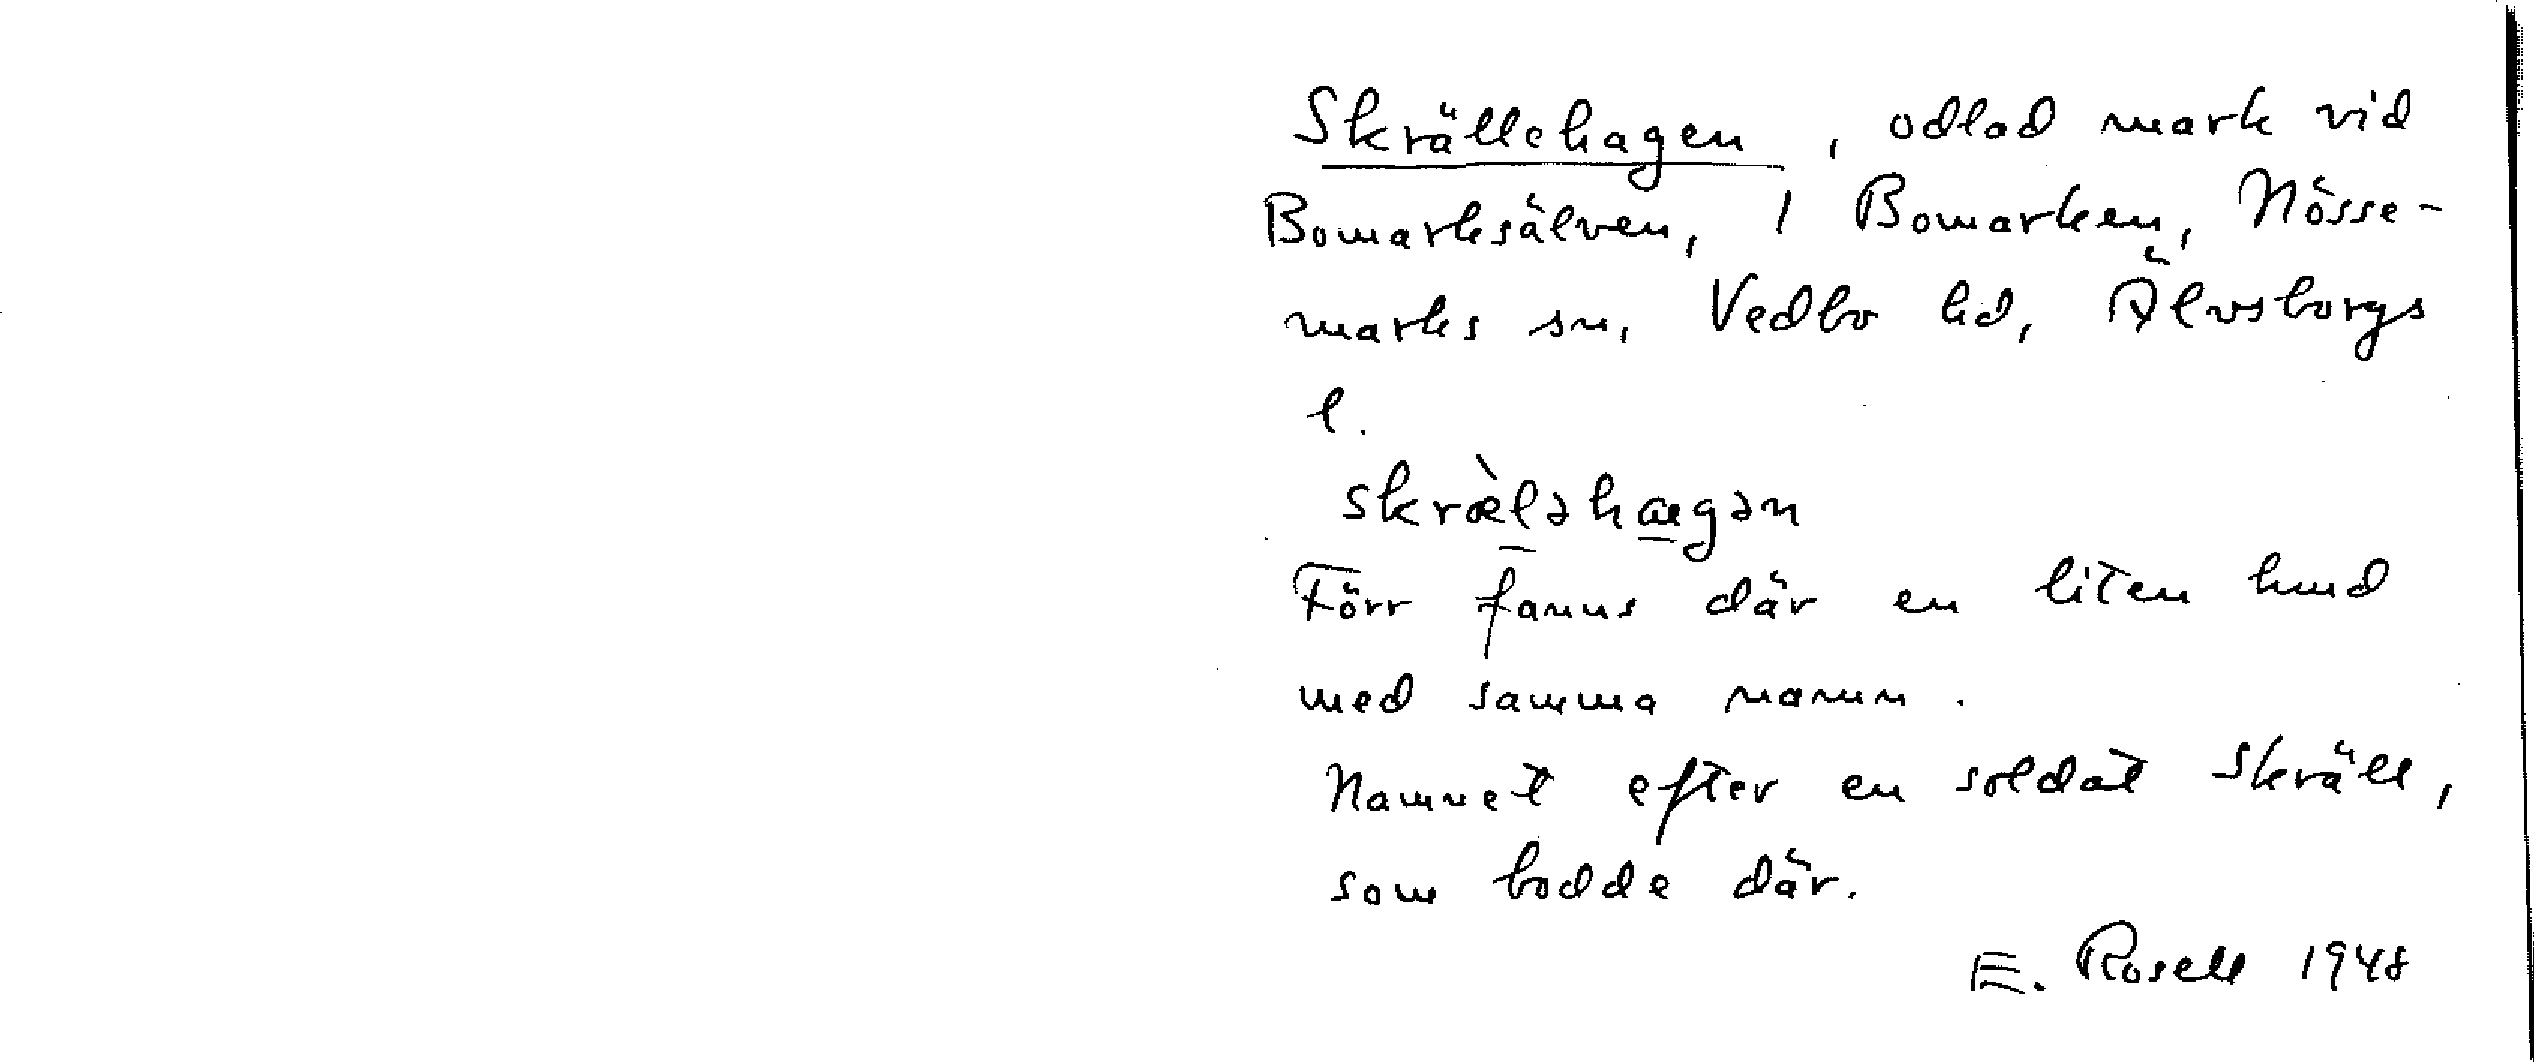 Skrällehagen, odlad mark vid
Bomarksälven, i Bomarken, Nösse-
marks sn, Vedbo hd, Älvsborgs
l.
skræ̀ləhægən
Förr fanns där en liten hund
med samma namn.
Namnet efter en soldat Skräll,
som bodde där.
E. Rosell 1948